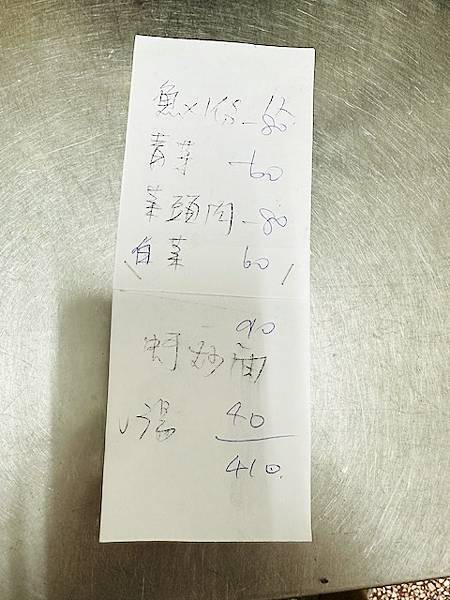 魚x1份-80
青菜 -60
菜頭肉-80
白菜 60
90
蚵炒面
湯 40
410